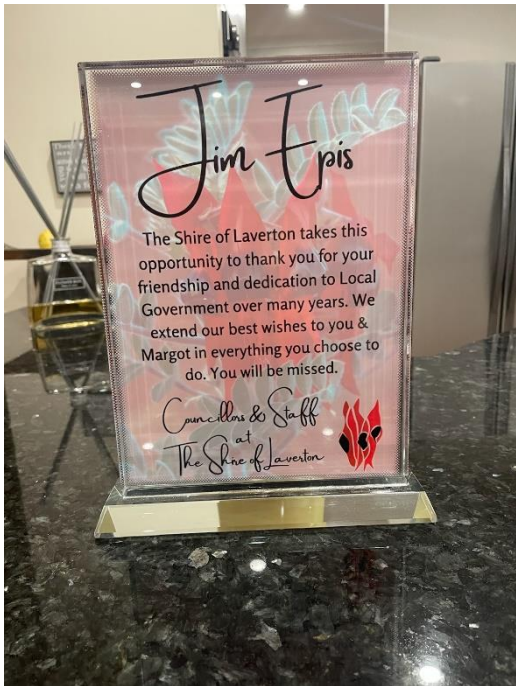 Jim Epis
The Shire of Laverton takes this
opportunity to thank you for your
friendship and dedication to Local
Government over many years. We
extend our best wishes to you &
Margot in everything you choose to
do. You will be missed.
Councillors & Staff
at
The Shire of Laverton